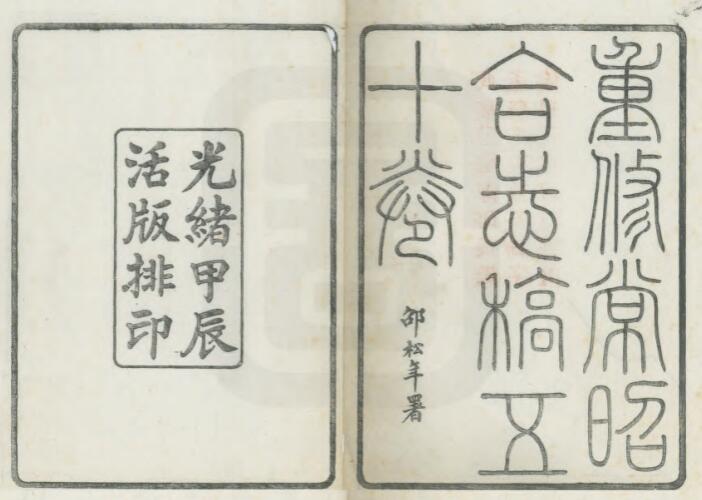 重修常昭
合志稿五
十卷
邵松年署
光緒甲辰
活版排印